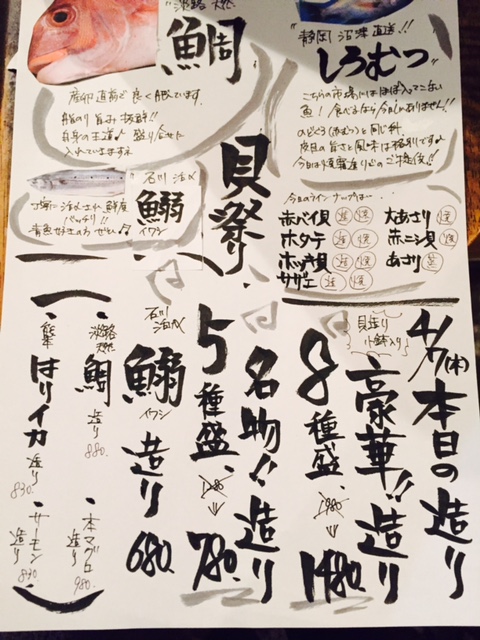 淡路 天然
鯛
産卵直前で良く肥えています。
脂のり 旨み 抜群!!
白身の王道♪ 盛り合せに
入れていますよ
"静岡 沼津 直送!!"
しろむつ"
こちらの市場にはほぼ入ってこない
魚! 食べるなら今日しかありません!!
のどぐろ(赤むつ)と同じ科。
皮目の旨さと風味は格別ですよ
石川 活〆
鰯
イワシ
丁寧に活〆され鮮度
バッチリ!!
青魚好きの方 ぜひ♪
貝祭り
今日のラインナップは…
赤バイ貝 造 焼
ホタテ 造 焼
ホッキ貝 造 焼
サザエ 造 焼
大あさり 焼
赤ニシ貝 焼
あさり
4/7(木) 本日の造り
貝造り 小鉢入り
豪華!! 造り
8種盛、 1980 ⇒ 1480.
名物!! 造り
5種盛、 1280 ⇒ 780.
石川 活〆
鰯 造り 680.
イワシ
・淡路 天然 鯛 造り 880.
・本マグロ 造り 980.
はりイカ 造り 830.
・サーモン 造り 830.